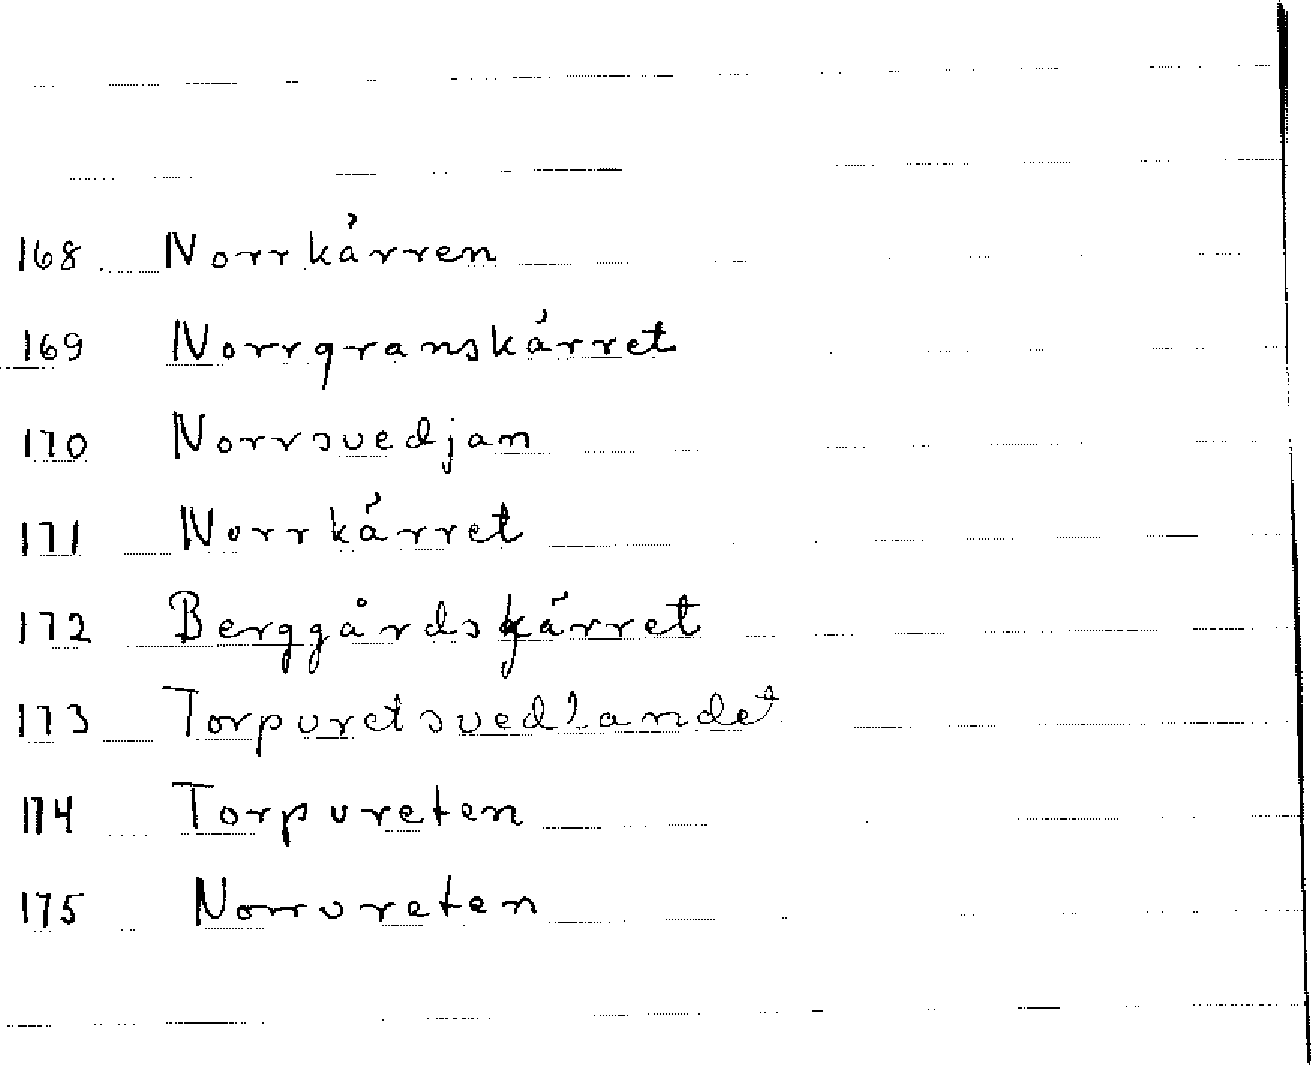 168 Norrkärren
169 Norrgranskärret
170 Norrsvedjan
171 Norrkärret
172 Berggårdskärret
173 Torpvretsvedlandet
174 Torpvreten
175 Norrvreten